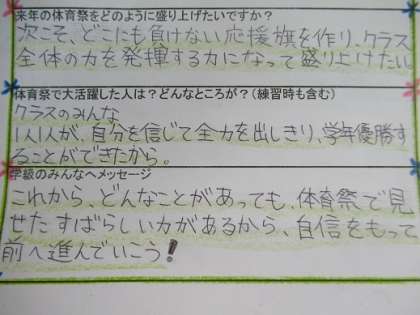 来年の体育祭をどのように盛り上げたいですか?
次こそ、どこにも負けない応援旗を作り、クラス
全体の力を発揮する力になって盛り上げたい。
体育祭で大活躍した人は?どんなところが?(練習時も含む)
クラスのみんな
1人1人が、自分を信じて全力を出しきり、学年優勝す
ることができたから。
学級のみんなへメッセージ
これから、どんなことがあっても、体育祭で見
せたすばらしい力があるから、自信をもって
前へ進んでいこう!